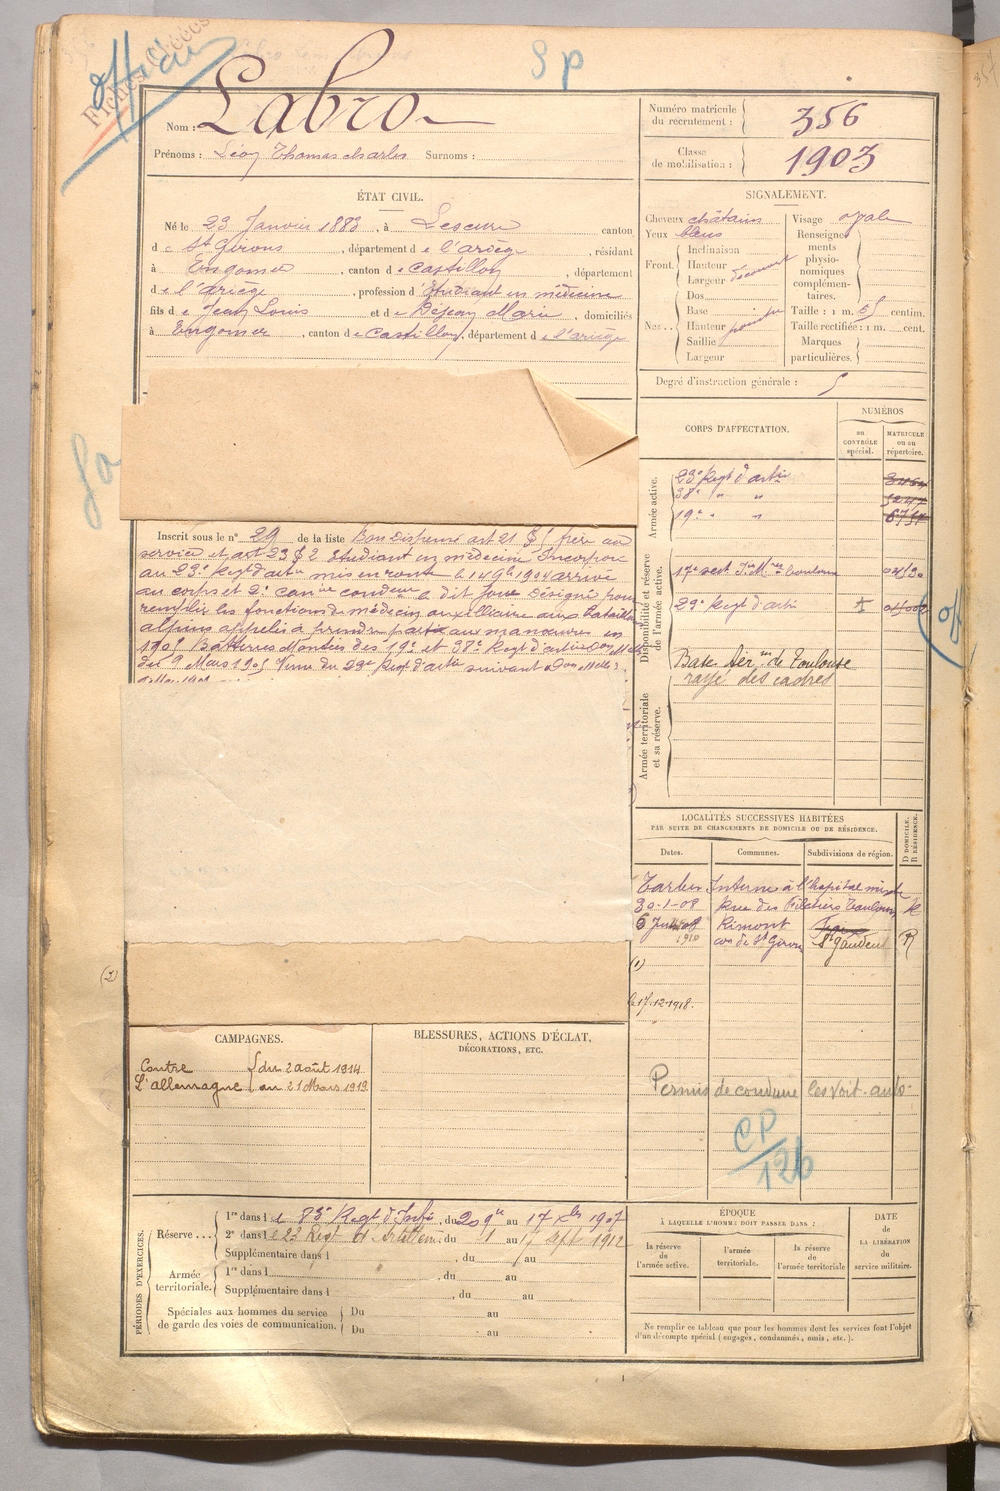 Officier
SP
Nom : Labro
Prénoms : Léon Thomas Charles Surnoms :
Numéro matricule du recrutement : 356
Classe de mobilisation : 1903
ÉTAT CIVIL.
Né le 23 Janvier 1883, à Lescure canton
de St Girons, département de l'ariège, résidant
à Engomer, canton de Castillon, département
de l'ariège, profession d'Etudiant en médecine
fils de Jean Louis et de Dejean Marie, domiciliés
à Engomer, canton de Castillon, département de l'ariège
SIGNALEMENT.
Cheveux châtains
Yeux bleus
Front. Inclinaison
Hauteur
Largeur découvert
Nez Dos
Base
Hauteur
Saillie
Largeur
Visage ovale
Renseignements physionomiques complémentaires.
Taille : 1 m. 65 centim.
Taille rectifiée : 1 m. cent.
Marques particulières.
Degré d'instruction générale : 5
CORPS D'AFFECTATION.
NUMÉROS
au CONTRÔLE spécial.
MATRICULE ou au répertoire.
Armée active.
23e Regt d'artie
38e " "
19e " "
Disponibilité et réserve de l'armée active.
17e sect I. M. res Toulouse
23e Regt d'artie I
Base Aér. de Toulouse
rayé des cadres
Armée territoriale et sa réserve.
Inscrit sous le n° 29 de la liste Bon Dispensé art 21 § frère au
service et art 23 § 2 Etudiant en médecine Incorporé
au 23e Regt d'artie mis en route le 14 9bre 1904 arrivé
au corps et 2e canonnier conducteur le dit jour Désigné pour
remplir les fonctions de médecin auxilliaire aux Bataillons
alpins appelés à prendre part aux manœuvres en
1905 Batteries Montées des 19e et 38e Regt d'artie
du 9 Mars 1905 Venu du 23e Regt d'artie suivant
LOCALITÉS SUCCESSIVES HABITÉES
PAR SUITE DE CHANGEMENTS DE DOMICILE OU DE RÉSIDENCE.
Dates. Communes. Subdivisions de région. D DOMICILE. R RÉSIDENCE.
Tarbes Interne à l'hopital mixte
30-1-08 Rue des Filatiers Toulouse R
6 Juin 1910 Rimont
con de St Girons St Gaudens R
(1)
(2)
le 17.12.1918.
Permis de conduire les voit. auto.
CP/126
CAMPAGNES.
Contre l'allemagne du 2 août 1914
au 21 Mars 1919
BLESSURES, ACTIONS D'ÉCLAT,
DÉCORATIONS, ETC.
PÉRIODES D'EXERCICES.
Réserve... 1re dans le 83e Regt d'Infie, du 20 9bre au 17 Xbre 1907
2e dans le 23 Regt d'Artillerie du 1 au 17 Sept 1912
Supplémentaire dans l , du au
Armée territoriale. 1re dans l , du au
Supplémentaire dans l , du au
Spéciales aux hommes du service de garde des voies de communication. Du au
Du au
ÉPOQUE
À LAQUELLE L'HOMME DOIT PASSER DANS :
la réserve de l'armée active.
l'armée territoriale.
la réserve de l'armée territoriale
DATE DE LA LIBÉRATION du service militaire.
Ne remplir ce tableau que pour les hommes dont les services font l'objet
d'un décompte spécial (engagés, condamnés, omis, etc.).